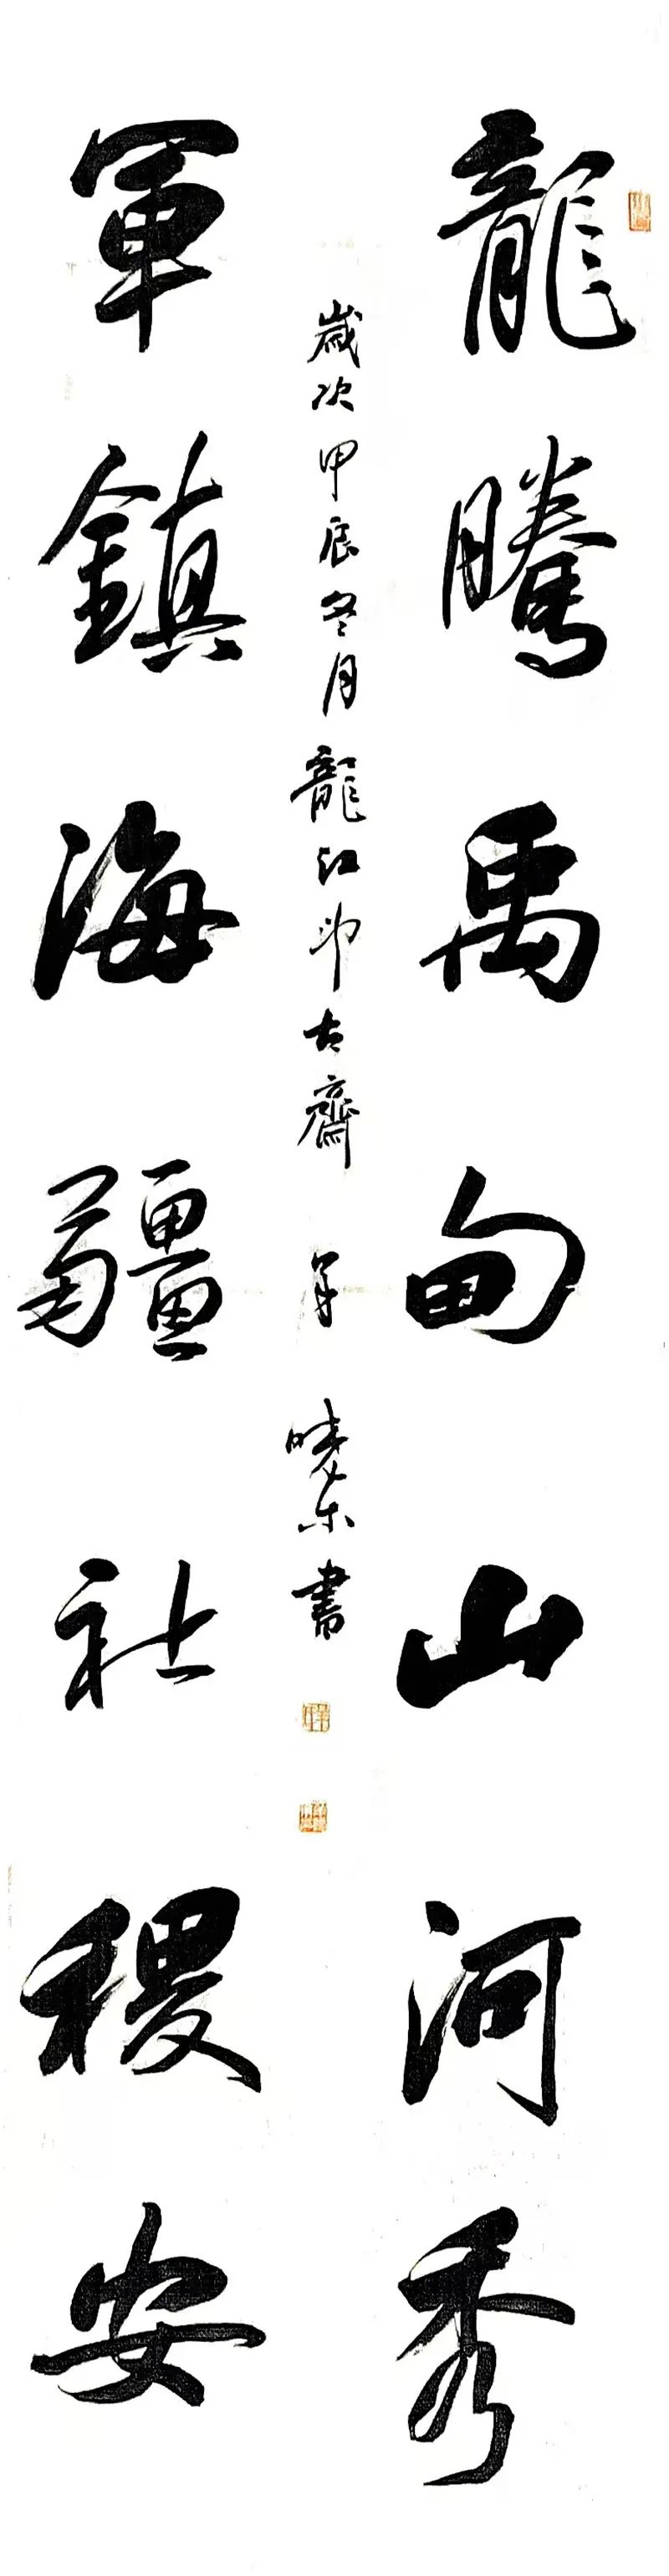 龍騰禹甸山河秀
歲次甲辰冬月龍江印古齋 羊曉东書
軍鎮海疆社稷安